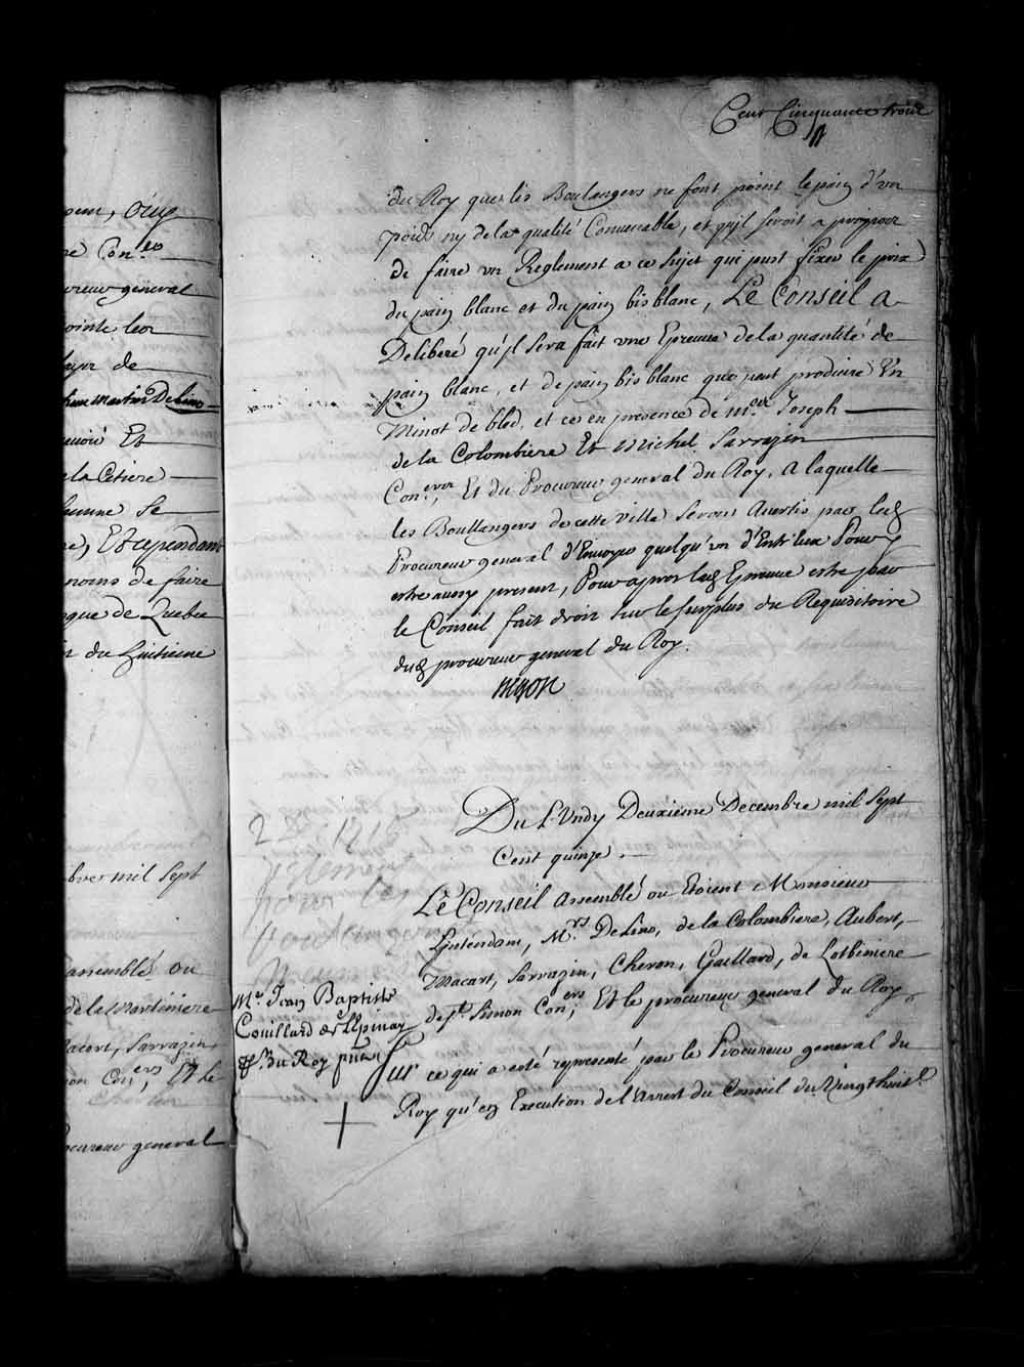 Cent Cinquante trois
oüy
re Con.rs
reur general
ointe leor
de
Martin Delino
Et
Se
Et cependant
moins de faire
que de Quebec
du huitieme
bre mil Sept
assemblé ou
de la Martiniere
Macart, Sarrazin,
on Con.ers, Et le
procureur general
du Roy que les Boulangers ne font point le pain d'un
poids ny de la qualité Convenable, et qu'jl seroit a propos
de faire un Reglement a ce Sujet qui peut fixer le prix
du pain blanc et du pain bis blanc, Le Conseil a
Deliberé qu'jl sera fait une Epreuve de la quantité de
pain blanc, et de pain bis blanc que peut produire Un
Minot de bled, et ce en presence de m.es Joseph
de la Colombiere Et Michel Sarrazin
Con.ers, Et du Procureur general du Roy, a laquelle
les Boullangers de cette ville seront Avertis par led.
Procureur general d'Envoyer quelqu'un d'Entr'eux Pour y
estre aussy present, Pour apres lad. Epreuve estre par
le Conseil fait droit sur le surplus du Requisitoire
dud. procureur general du Roy.
Begon
Du Lundy Deuxiéme Decembre mil Sept
Cent quinze.
2 Xbre 1715
pour les
boulangers
Le Conseil assemblé ou Etoient Monsieur
L'intendant, M.rs Delino, de la Colombiere, Aubert,
Macart, Sarrazin, Cheron, Gaillard, de Lotbiniere
de S.t Simon Con.ers, Et le procureur general du Roy,
M.e Jean Baptiste
Couillard de L'Epinay
du Roy
Sur ce qui a esté representé par le Procureur general du
Roy qu'en Execution de l'arrest du Conseil du Vingt huit.e